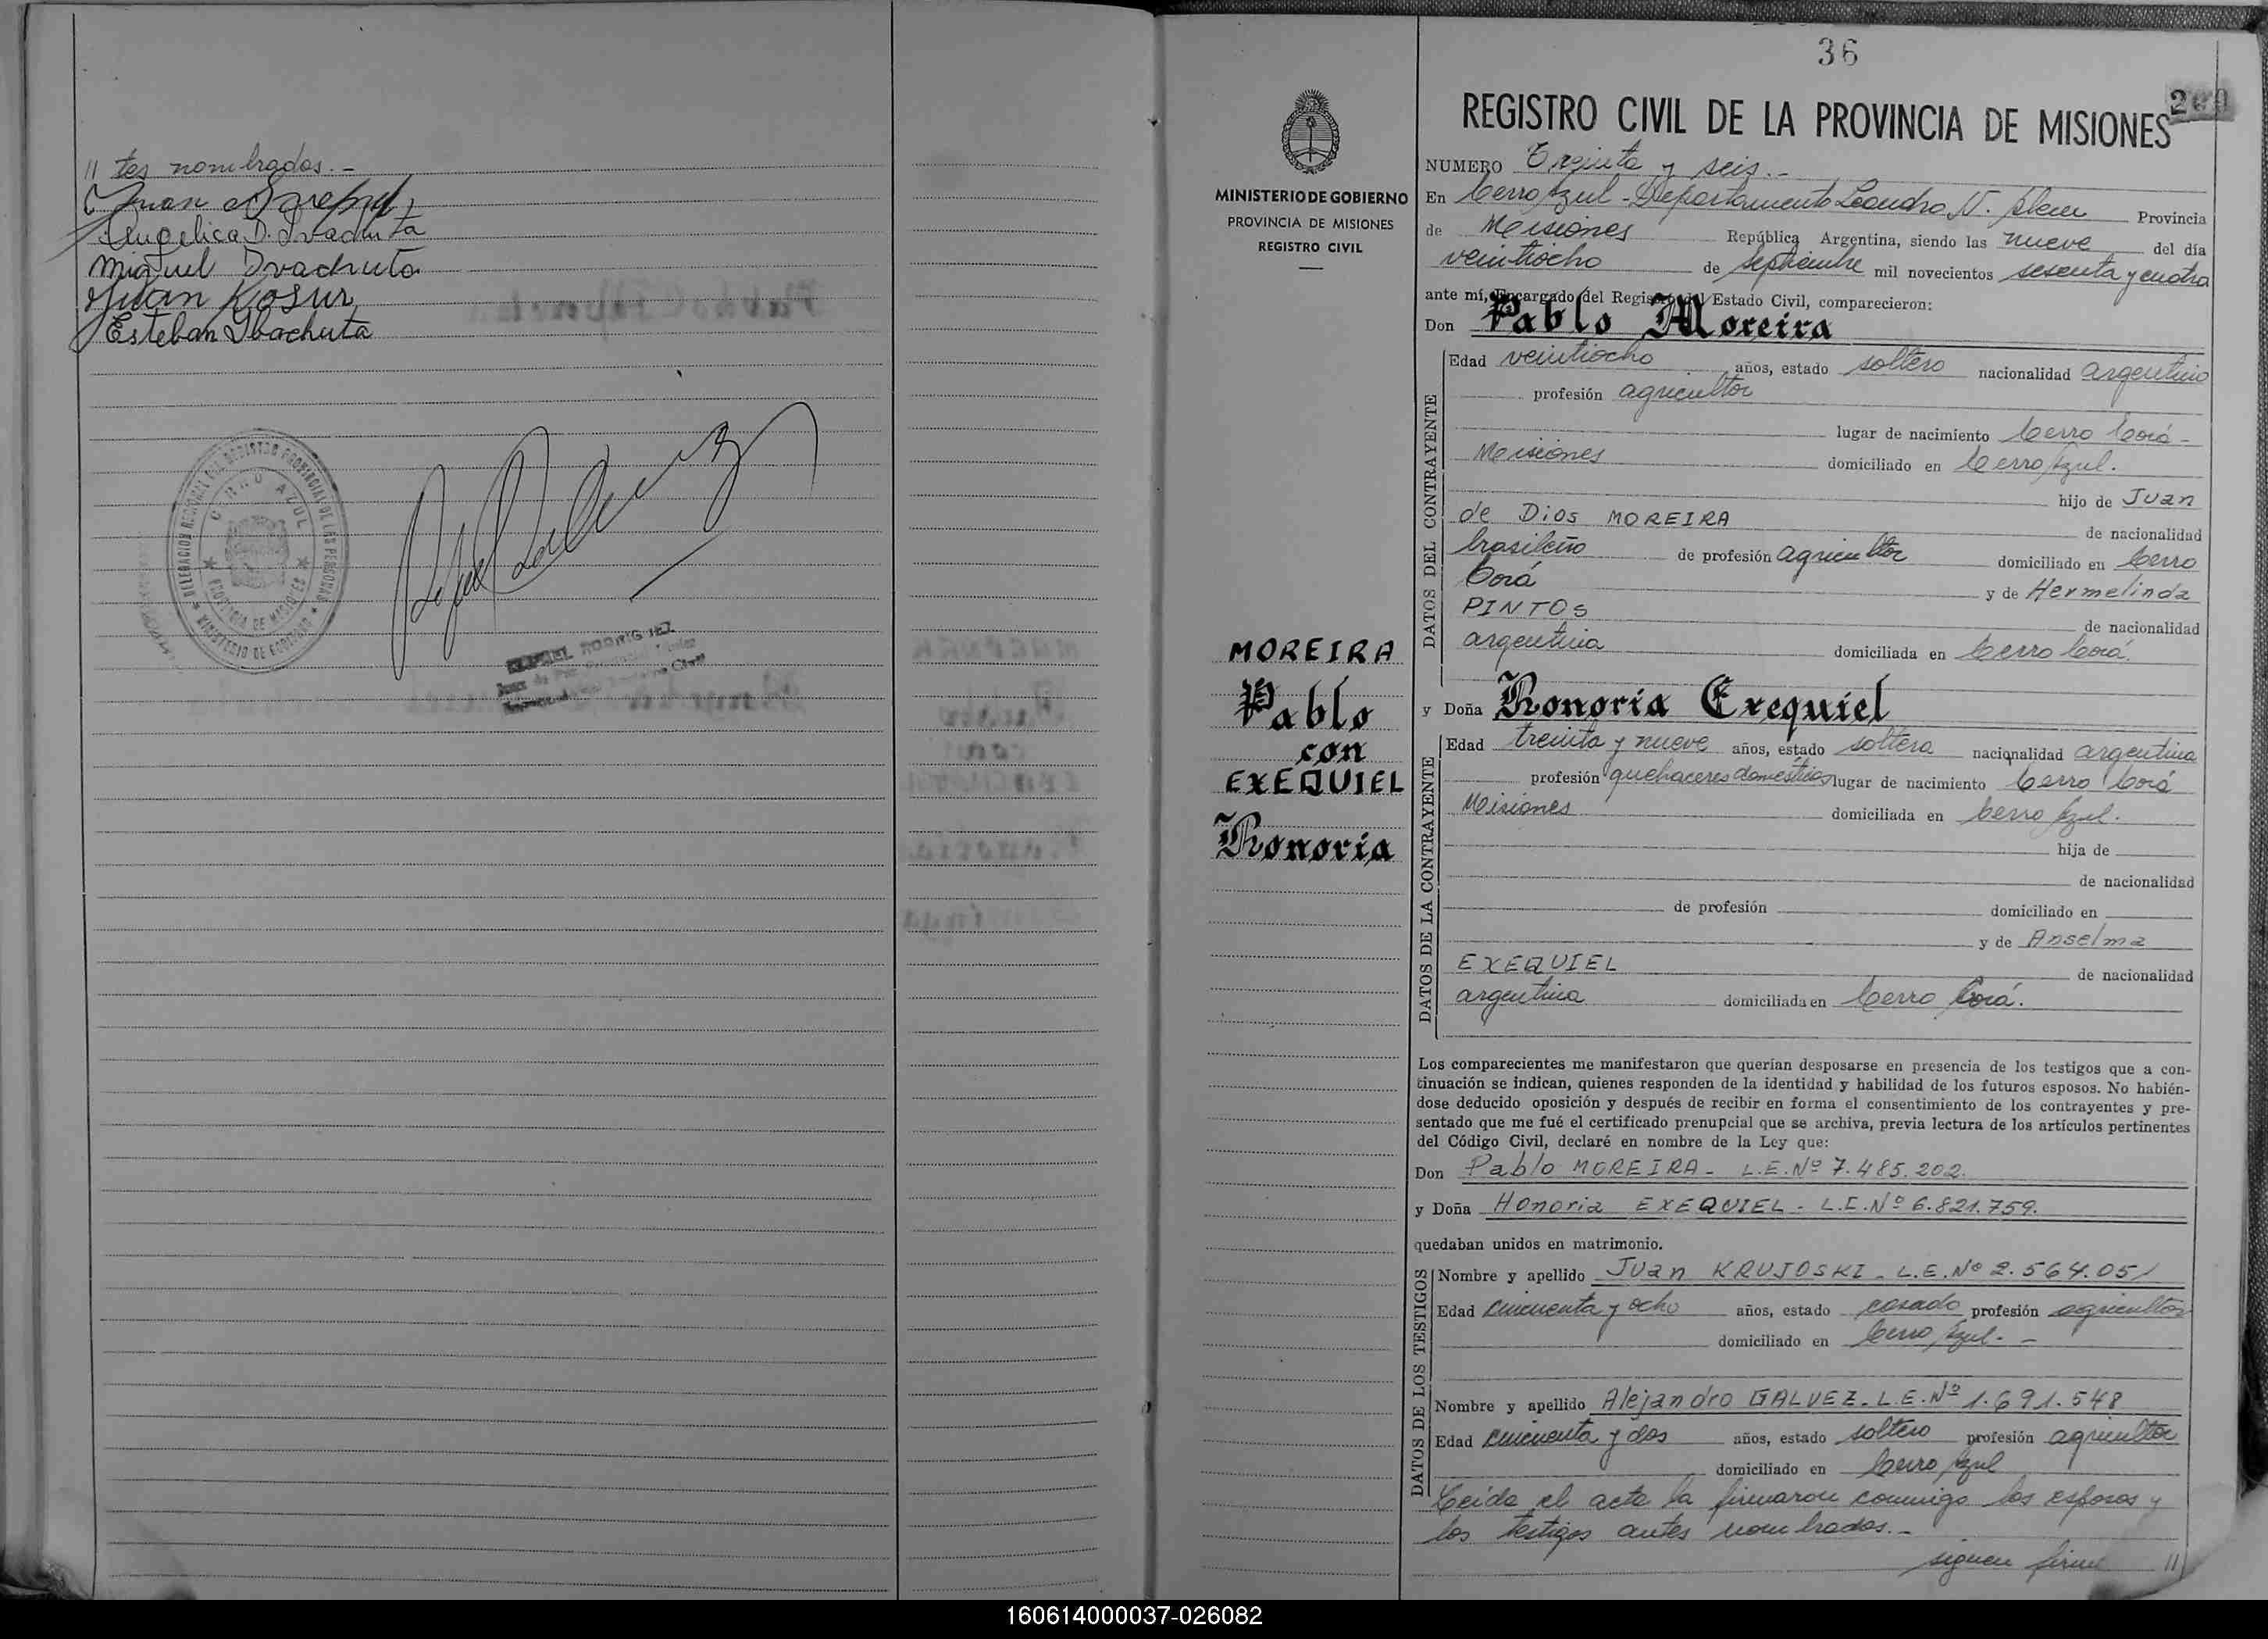 // tes nombrados.-
Juan
Angelica D. Ivachuta
Miguel Ivachuta
Juan Kosur
Esteban Ivachuta
DELEGACION REGISTRO PROVINCIAL DE LAS PERSONAS
CERRO AZUL
PROVINCIA DE MISIONES
MINISTERIO DE GOBIERNO
RODRIGUEZ
Juez de Paz
36
200
REGISTRO CIVIL DE LA PROVINCIA DE MISIONES
MINISTERIO DE GOBIERNO
PROVINCIA DE MISIONES
REGISTRO CIVIL
NUMERO Treinta y seis.-
En Cerro Azul - Departamento Leandro N. Alem Provincia
de Misiones República Argentina, siendo las nueve del día
veintiocho de septiembre mil novecientos sesenta y cuatro
ante mí, Encargado del Registro del Estado Civil, comparecieron:
Don Pablo Moreira
DATOS DEL CONTRAYENTE
Edad veintiocho años, estado soltero nacionalidad argentino
profesión agricultor
lugar de nacimiento Cerro Corá -
Misiones domiciliado en Cerro Azul.
hijo de Juan
de Dios MOREIRA de nacionalidad
brasileño de profesión agricultor domiciliado en Cerro
Corá y de Hermelinda
PINTOS de nacionalidad
argentina domiciliada en Cerro Corá.
MOREIRA
Pablo
con
EXEQUIEL
Honoria
y Doña Honoria Exequiel
DATOS DE LA CONTRAYENTE
Edad treinta y nueve años, estado soltera nacionalidad argentina
profesión quehaceres domésticos lugar de nacimiento Cerro Corá
Misiones domiciliada en Cerro Azul.
hija de
de nacionalidad
de profesión domiciliado en
y de Anselma
EXEQUIEL de nacionalidad
argentina domiciliada en Cerro Corá.
Los comparecientes me manifestaron que querían desposarse en presencia de los testigos que a con-
tinuación se indican, quienes responden de la identidad y habilidad de los futuros esposos. No habién-
dose deducido oposición y después de recibir en forma el consentimiento de los contrayentes y pre-
sentado que me fué el certificado prenupcial que se archiva, previa lectura de los artículos pertinentes
del Código Civil, declaré en nombre de la Ley que:
Don Pablo MOREIRA - L.E. Nº 7.485.202.
y Doña Honoria EXEQUIEL - L.C. Nº 6.821.759.
quedaban unidos en matrimonio.
DATOS DE LOS TESTIGOS
Nombre y apellido Juan KRUJOSKI - L.E. Nº 2.564.051
Edad cincuenta y ocho años, estado casado profesión agricultor
domiciliado en Cerro Azul. -
Nombre y apellido Alejandro GALVEZ - L.E. Nº 1.691.548
Edad cincuenta y dos años, estado soltero profesión agricultor
domiciliado en Cerro Azul
Leída el acta la firmaron conmigo los esposos y
los testigos antes nombrados.-
siguen firm //
160614000037-026082